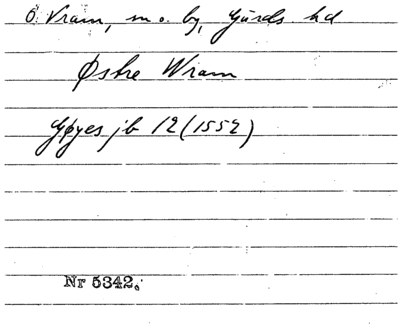 Ö Vram, s o. by, Gärds hd
Østre Wram
Gøyes jb 12 (1552)
Nr 5342.